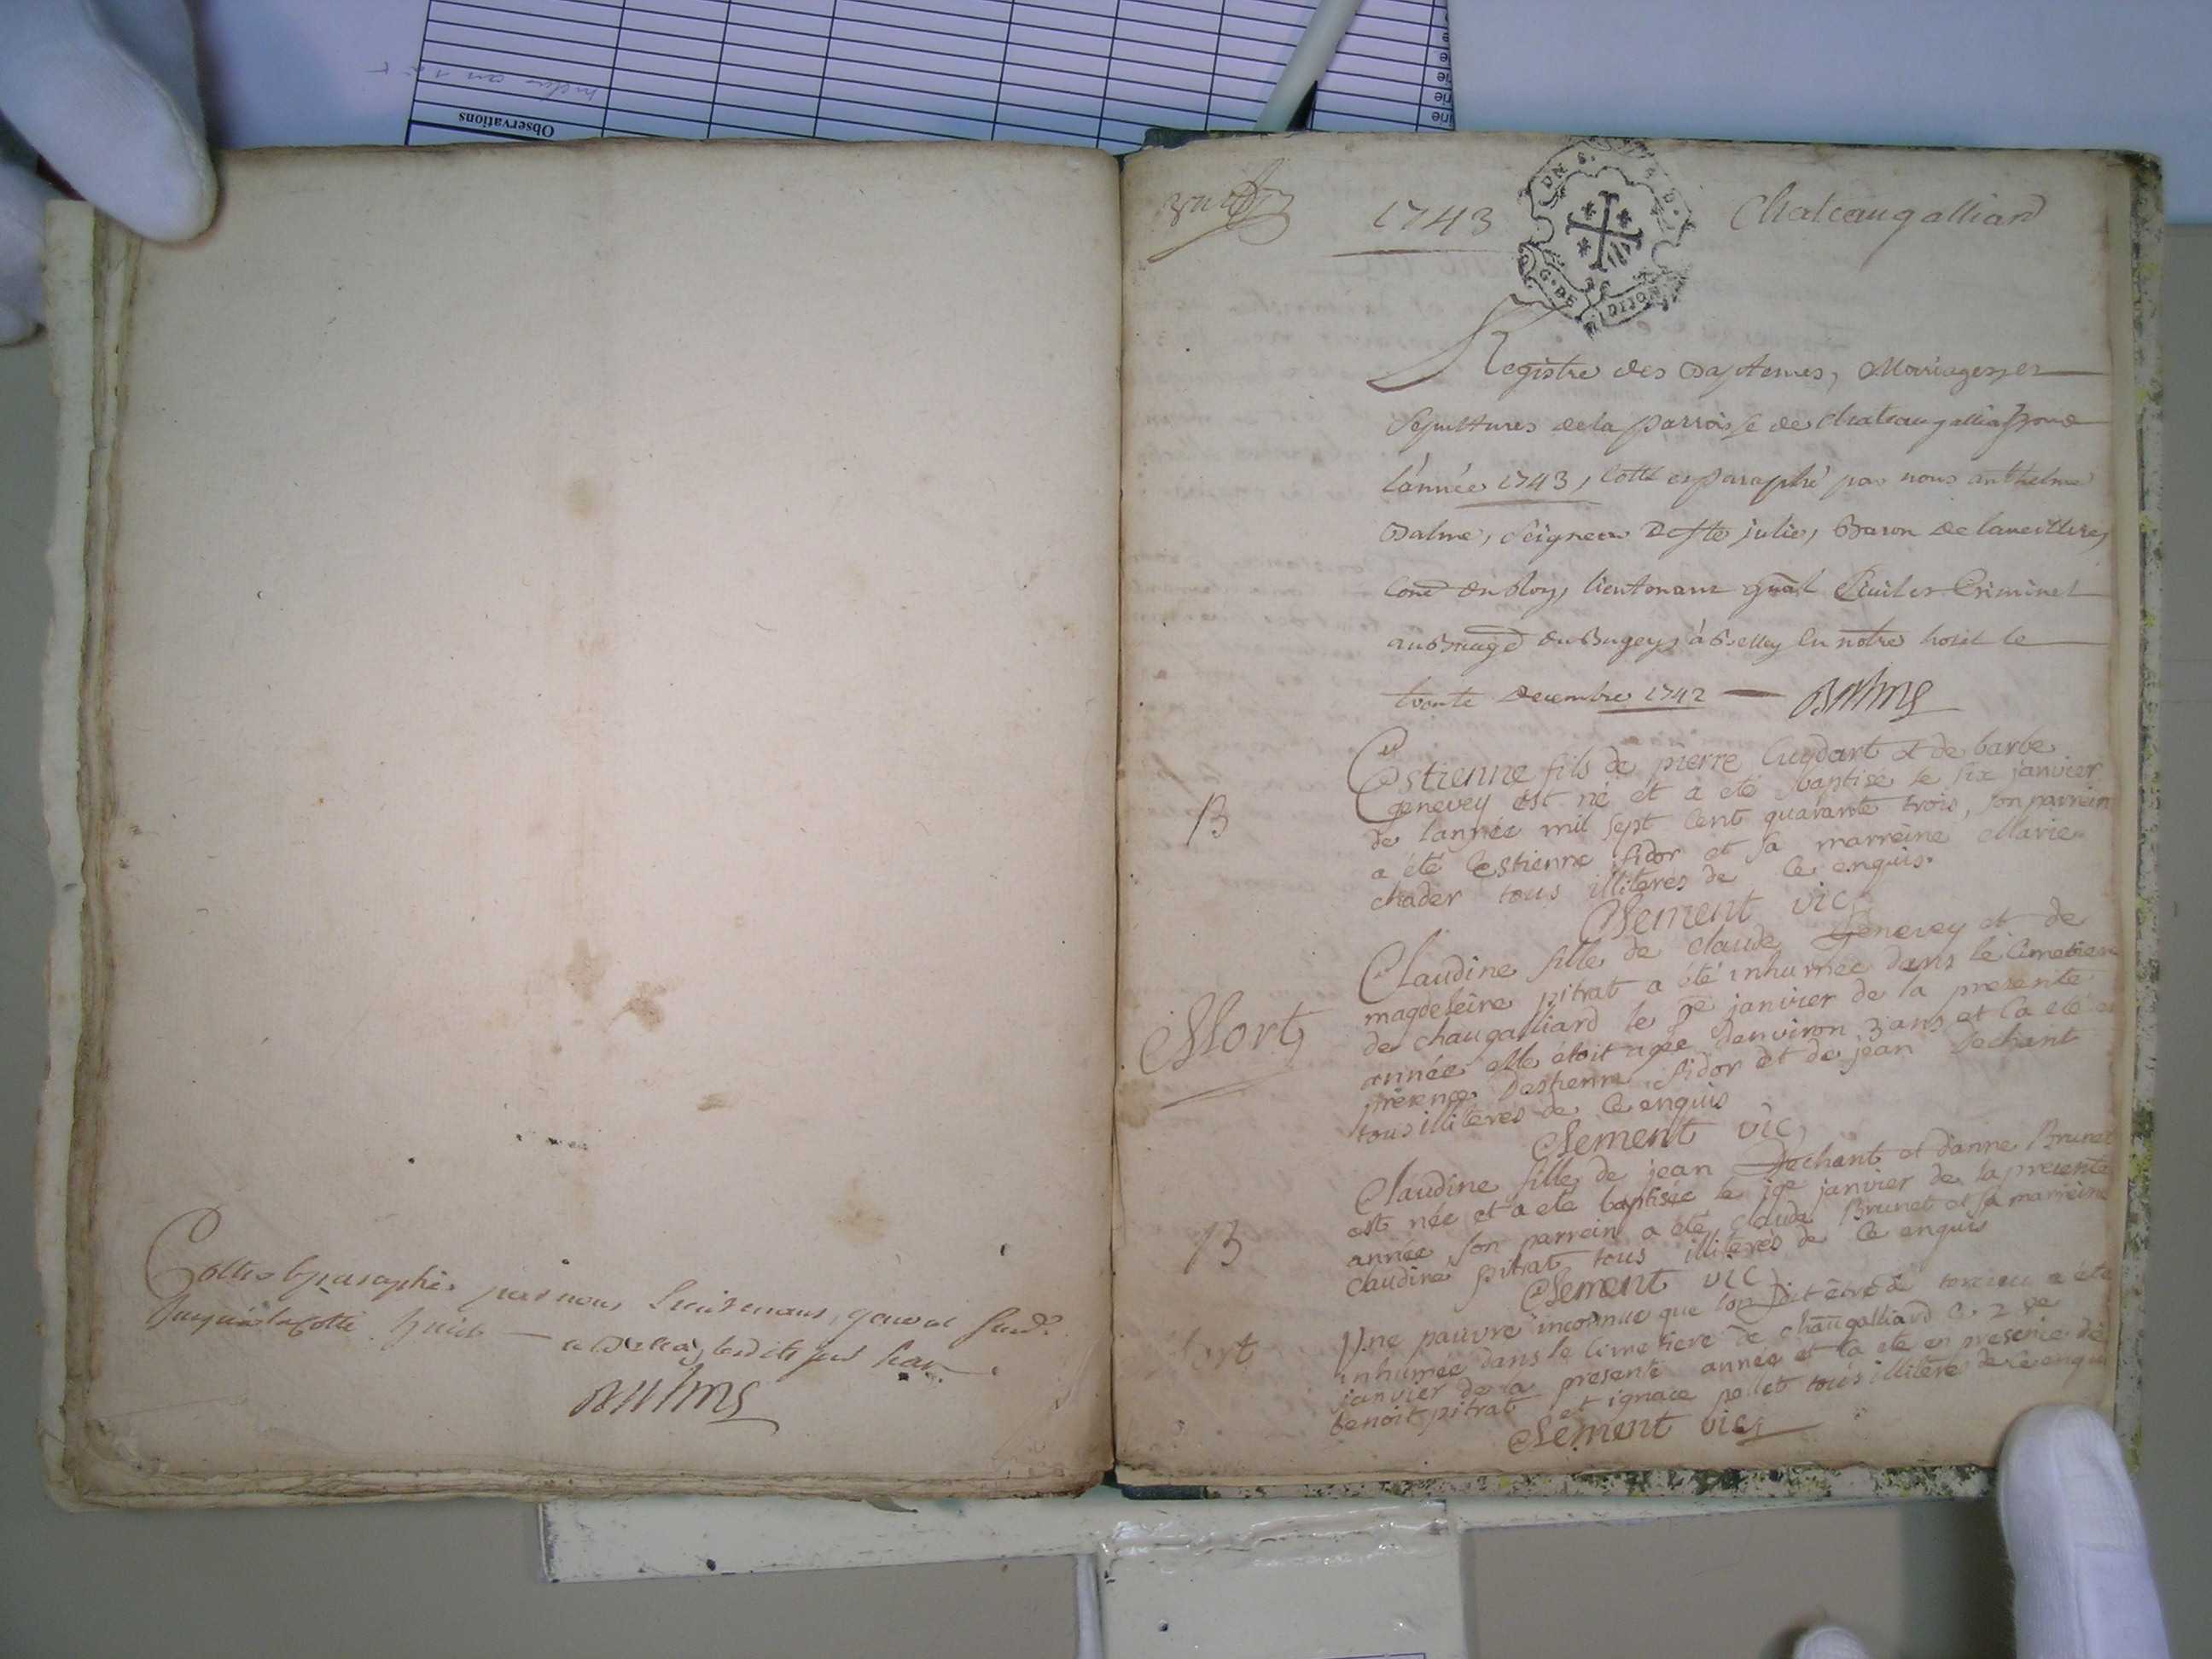 Observations
Cottes et paraphés par nous Lieutenant, general susd.
jusqua la cotte huict — a Belley lesdits jour han
Balme
1743
Chateaugalliard
UN S. D.
G. DE DIJON
Registre des Baptemes, Mariages, et
Sepultures de la parroisse de Chateaugalliard pour
l'année 1743, Cotté et paraphé par nous anthelme
Balme, seigneur De Ste julie, Baron de
Coner du Roy, lieutenant gnāl Civil et Criminel
au Bailliage du Bugey, à Belley En notre hotel le
trente decembre 1742 — Balme
B
Estienne fils de pierre Cuydart et de barbe
genevey est né et a eté baptisé le six janvier
de lannée mil sept Cent quarante trois, son parrein
a été Estienne sidor et sa marreine Marie
chader tous illiteres de ce enquis.
Clement vic
Mort
Claudine fille de claude Genevey et de
magdeleine pitrat a été inhumée dans le Cimetiere
de chaugalliard le janvier de la presente
année elle étoit agée denviron 3 ans et la eté en
présence destienne sidor et de jean dechant
tous illiteres de ce enquis
Clement vic
B
Claudine fille de jean Dechant et danne Brunet
est née et a eté baptisée le janvier de la presente
année son parrein a été claude Brunet et sa marreine
claudine pitrat tous illiteres de ce enquis
Clement vic
Mort
Vne pauvre inconnue que lon dit être de a été
inhumée dans le Cimetiere de chaugalliard le 2
janvier de la presente année et la eté en presence de
benoit pitrat et ignace pellet tous illitere de ce enquis
Clement vic